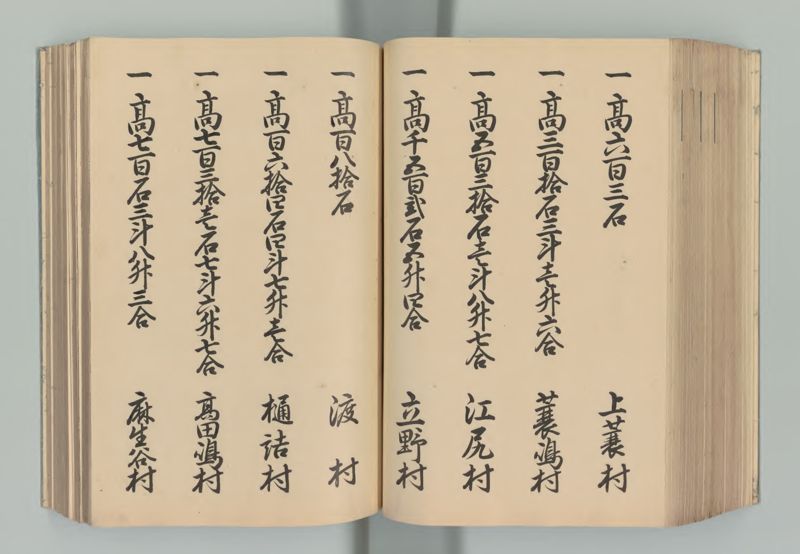 一 高六百三石 上蓑村
一 高三百拾石三斗壱升六合 蓑嶋村
一 高五百三拾石壱斗八升七合 江尻村
一 高千五百弐石五升四合 立野村
一 高百八拾石 渡村
一 高百六拾四石四斗七升壱合 樋詰村
一 高七百三拾壱石七斗六升七合 高田嶋村
一 高七百石三斗八升三合 麻生谷村